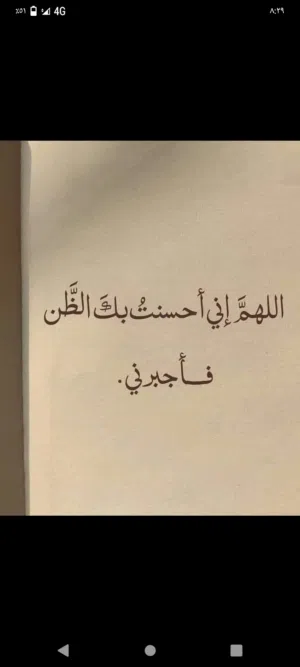 ٪٥١ 4G ٨:٢٩
اللهمَّ إني أحسنتُ بكَ الظَّن
فـأجبرني.